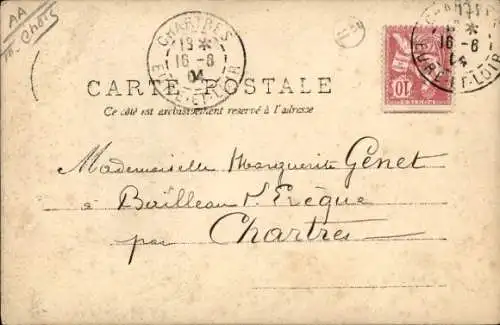 AA
CHARTRES
19 *
16 - 6
04
EURE-ET-LOIR
CHARTRES
16 - 6
04
EURE-ET-LOIR
10
CARTE POSTALE
Ce côté est exclusivement reservé à l'adresse
Mademoiselle Marguerite Genet
à Bailleau l'Evèque
par
Chartres